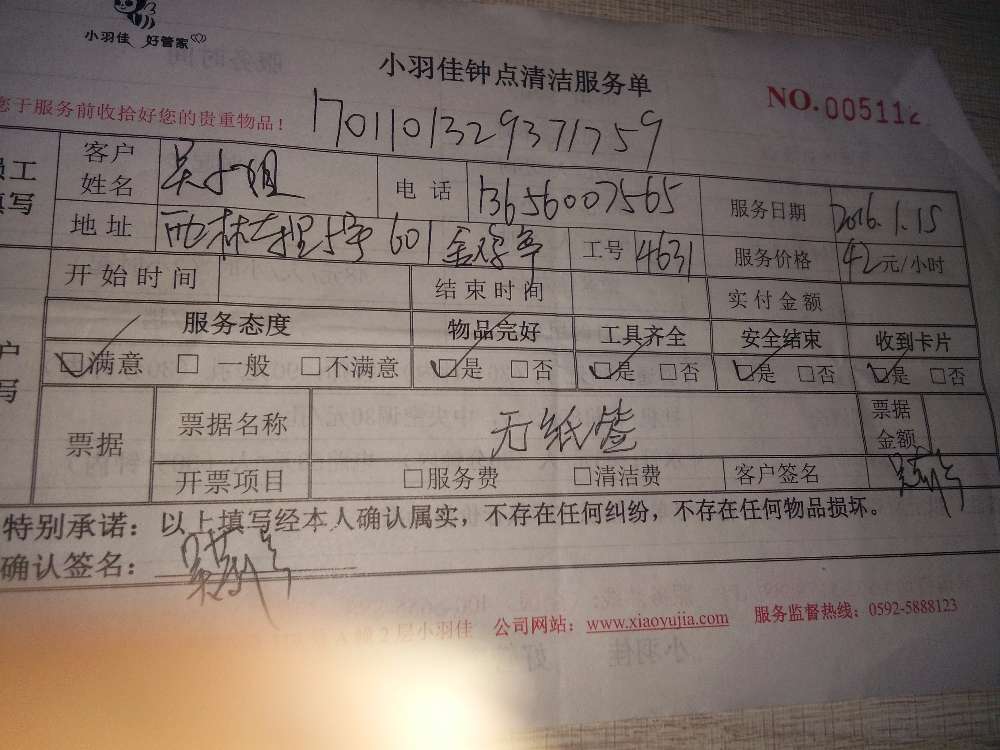 小羽佳 好管家
小羽佳钟点清洁服务单
NO.005112
您于服务前收拾好您的贵重物品!
1701101329371759
员工填写
客户姓名 吴小姐 电话 13656007565 服务日期 2016.1.15
地址 西林东里5号601 工号 4631 服务价格 42元/小时
开始时间 结束时间 实付金额
服务态度 物品完好 工具齐全 安全结束 收到卡片
☑满意 □一般 □不满意 ☑是 □否 ☑是 □否 ☑是 □否 ☑是 □否
票据 票据名称 无纸签 票据金额
开票项目 □服务费 □清洁费 客户签名
特别承诺:以上填写经本人确认属实,不存在任何纠纷,不存在任何物品损坏。
确认签名:
2层小羽佳 公司网站:www.xiaoyujia.com 服务监督热线:0592-5888123